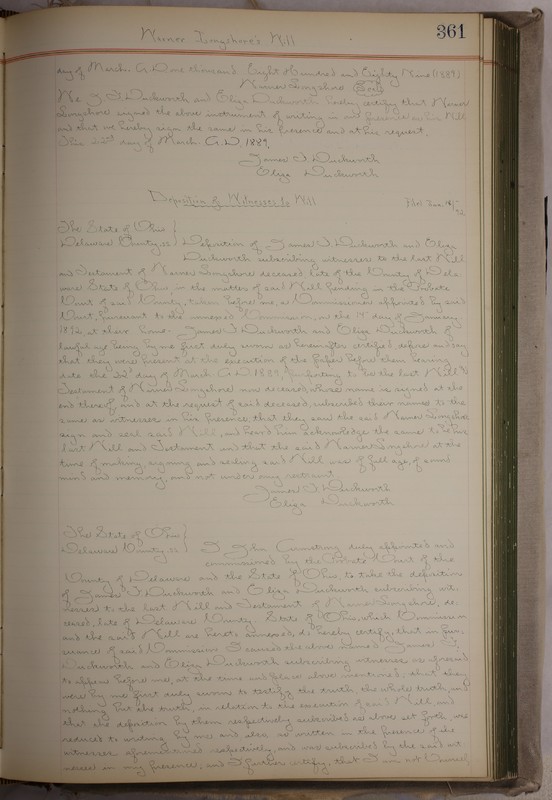 361
Werner Longshore's Will
day of March A.D. one thousand Eight Hundred and Eighty Nine (1889)
Werner Longshore (Seal)
We J. T. Duckworth and Eliza Duckworth hereby certify that Werner
Longshore signed the above instrument of writing in our presence as his Will
and that we hereby sign the same in his presence and at his request.
This 22d day of March A.D. 1889,
James T. Duckworth
Eliza Duckworth
Deposition of Witnesses to Will
Filed Jan. 19/92
The State of Ohio }
Delaware County, ss } Deposition of James T. Duckworth and Eliza
Duckworth subscribing witnesses to the last Will
and Testament of Werner Longshore deceased late of the County of Dela
ware State of Ohio, in the matter of said Will pending in the Probate
Court of said County, taken before me, a Commissioner appointed by said
Court, pursuant to the annexed Commission, on the 19" day of January
1892, at their home. James T. Duckworth and Eliza Duckworth of
lawful age being by me first duly sworn as hereinafter certified, depose and say
that they were present at the execution of the paper before them bearing
date the 22d day of March A.D. 1889, purporting to be the last Will &
Testament of Werner Longshore now deceased, whose name is signed at the
end thereof, and at the request of said deceased, subscribed their names to the
same as witnesses in his presence, that they saw the said Werner Longshore
sign and seal said Will, and heard him acknowledge the same to be his
last Will and Testament and that the said Werner Longshore at the
time of making, signing and sealing said Will was of full age, of sound
mind and memory, and not under any restraint.
James T. Duckworth
Eliza Duckworth
The State of Ohio }
Delaware County, ss } I, John Armstrong duly appointed and
commissioned by the Probate Court of the
County of Delaware and the State of Ohio, to take the depositions
of James T. Duckworth and Eliza Duckworth subscribing wit,
nesses to the last Will and Testament of Werner Longshore, de,
ceased, late of Delaware County, State of Ohio, which Commission
and the said Will are hereto annexed, do hereby certify, that in pur,
suance of said Commission I caused the above named James T,
Duckworth and Eliza Duckworth subscribing witnesses as aforesaid
to appear before me, at the time and place above mentioned; that they
were by me first duly sworn to testify the truth, the whole truth, and
nothing but the truth, in relation to the execution of said Will, and
that the deposition by them respectively subscribed as above set forth, was
reduced to writing by me and also so written in the presence of the
witnesses aforementioned respectively, and was subscribed by the said wit
nesses in my presence; and I further certify, that I am not Counsel,